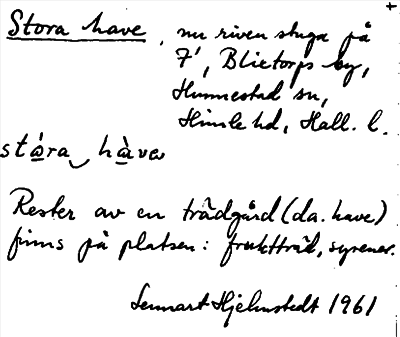 Stora have, nu riven stuga på
7', Blietorps by,
Hunnestad sn,
Himle hd, Hall. l.
stóra hàva
Rester av en trädgård (da. have)
finns på platsen: fruktträd, syrener.
Lennart Hjelmstedt 1961